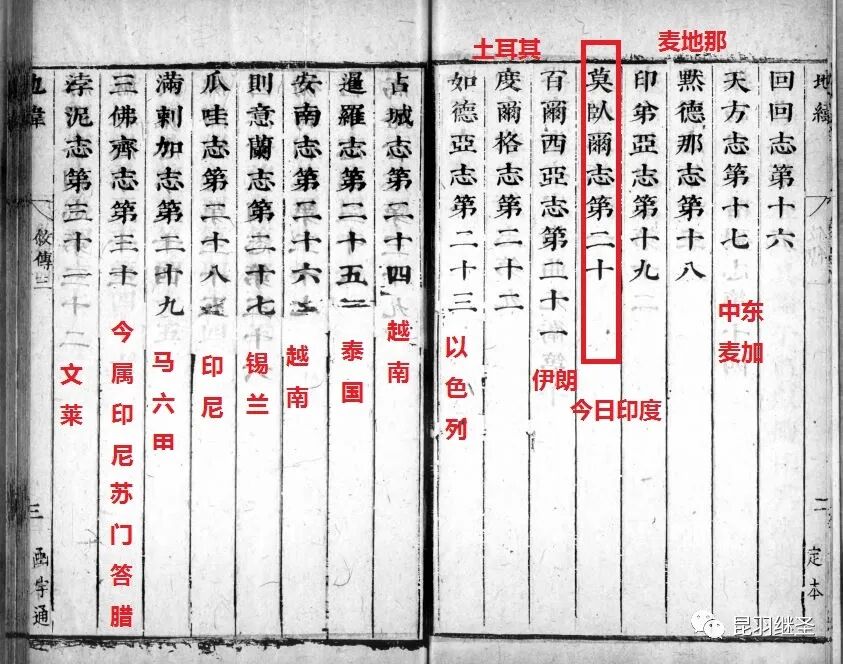 麦地那
土耳其
二
定本
回回志第十六
天方志第十七
中东麦加
黙德那志第十八
印第亞志第十九
莫臥爾志第二十
今日印度
百爾西亞志第二十一
伊朗
度爾格志第二十二
如德亞志第二十三
以色列
占城志第二十四
越南
暹羅志第二十五
泰国
安南志第二十六
越南
則意蘭志第二十七
锡兰
瓜哇志第二十八
印尼
滿剌加志第二十九
马六甲
三佛齊志第三十
今属印尼苏门答腊
浡泥志第三十一
文莱
地緯
敘傳
三
函宇通
昆羽继圣